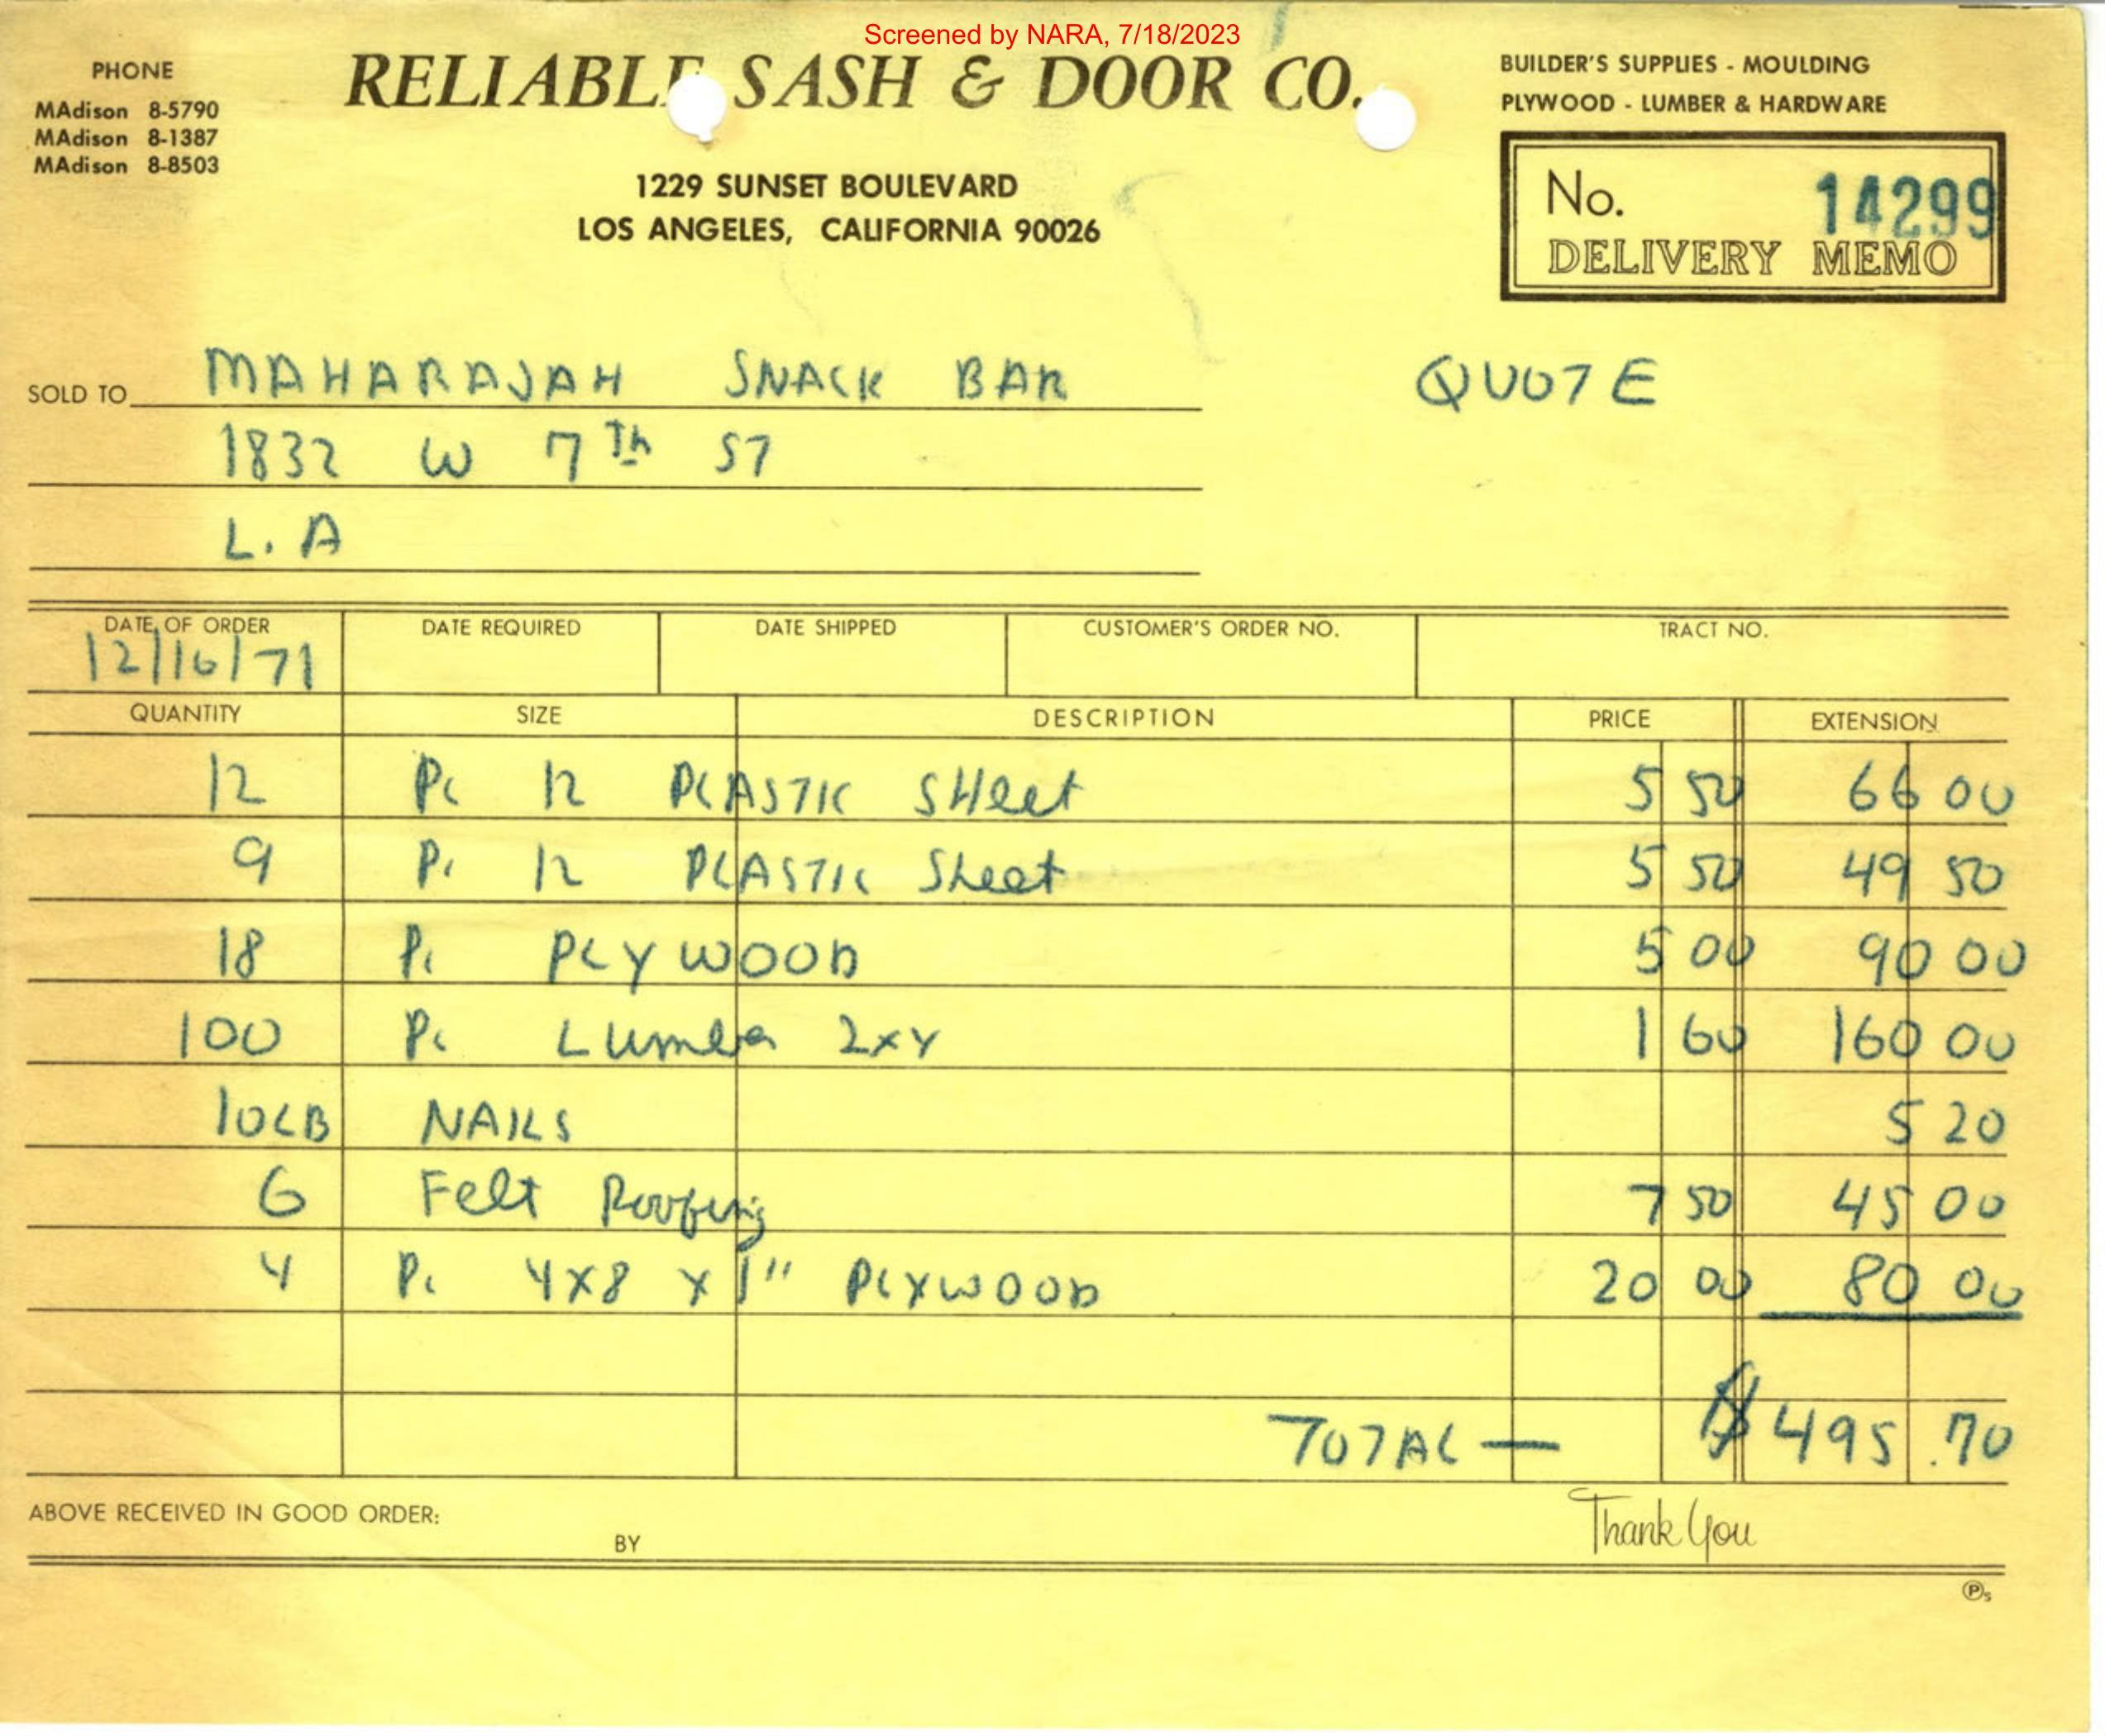 Screened by NARA, 7/18/2023
PHONE
MAdison 8-5790
MAdison 8-1387
MAdison 8-8503
RELIABLE SASH & DOOR CO.
1229 SUNSET BOULEVARD
LOS ANGELES, CALIFORNIA 90026
BUILDER'S SUPPLIES - MOULDING
PLYWOOD - LUMBER & HARDWARE
No. 14299
DELIVERY MEMO
SOLD TO MAHARAJAH SNACK BAR
QUOTE
1832 W 7Th ST
L.A
DATE OF ORDER DATE REQUIRED DATE SHIPPED CUSTOMER'S ORDER NO. TRACT NO.
12/16/71
QUANTITY SIZE DESCRIPTION PRICE EXTENSION
12 Pc 12 PLASTIC SHeet 5 50 66 00
9 Pc 12 PLASTIC Sheet 5 50 49 50
18 Pc PLYWOOD 5 00 90 00
100 Pc Lumber 2x4 1 60 160 00
10LB NAILS 5 20
6 Felt Roofing 7 50 45 00
4 Pc 4X8 X 1" PLYWOOD 20 00 80 00
TOTAL — $495.70
ABOVE RECEIVED IN GOOD ORDER:
BY
Thank You